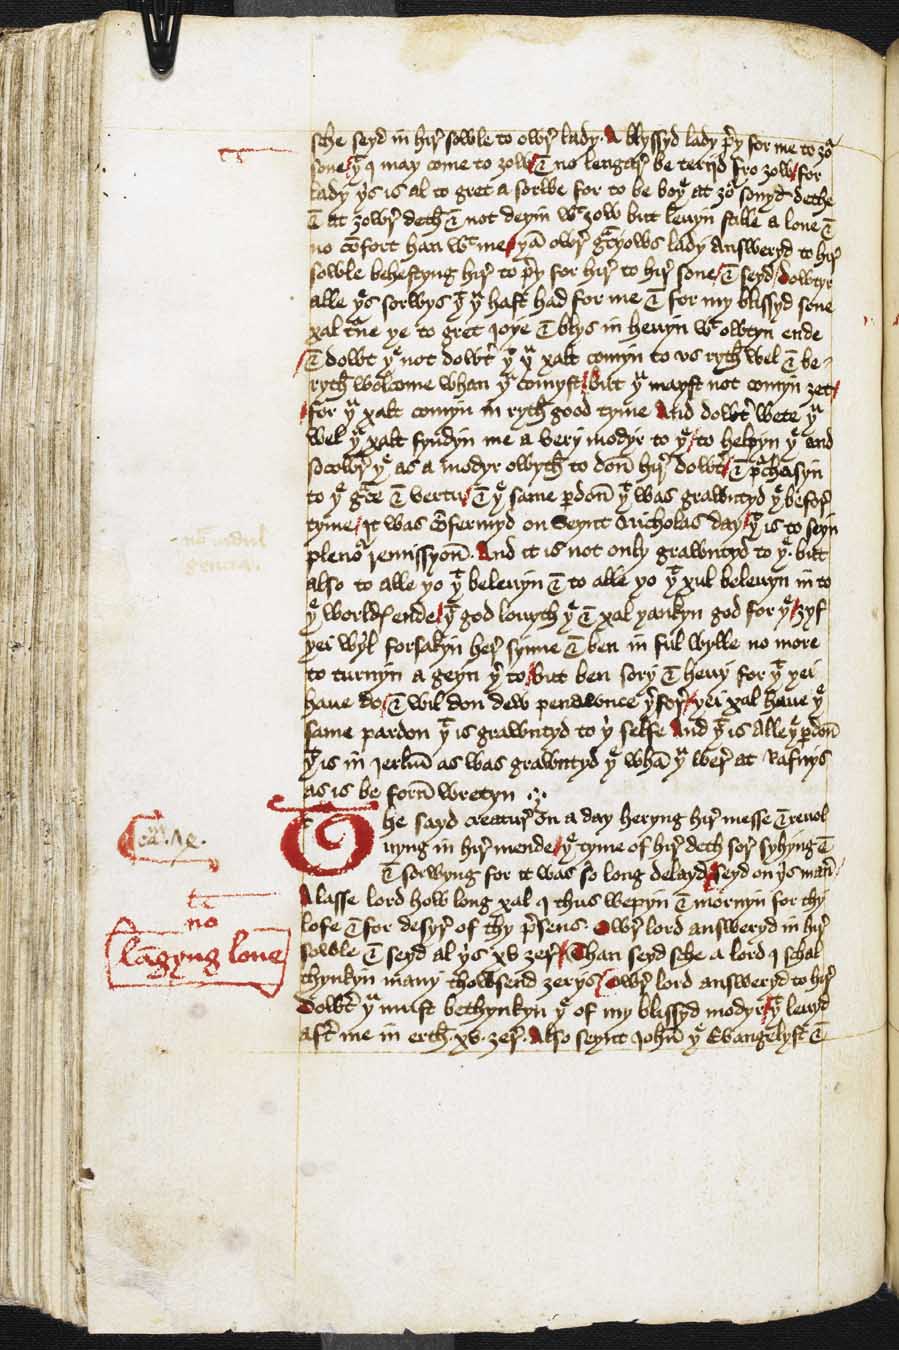 sche seyd in hir̛ sowle to owr̛ lady. A blyssyd lady p̄y for me to ȝoͬ
sone / yͭ I may come to ȝow / & no lengar̛ be teryid fro ȝow / for
lady yis is al to gret a sorwe for to be boyͤ at ȝoͬ sonyd dethe
& at ȝowr̛ deth & not deyin wͭ ȝow but leuyn stille a lone &
no cōfort han wͭ me / yā owr̛ gͣcyows lady answeryd to hir̛
sowle behestyng hir̛ to p̄y for hir̛ to hir̛ sone / & seyd / Dowtyr
alle yͤs sorwys yͭ yͧ hast had for me & for my blissyd sone
xal tͬne ye to gret joye & blys in heuyn wͭ owtyn ende
/ & dowt yͤ not dowtr̛ yͭ yͧ xalt comyn to vs ryth wel & be-
ryth wolcome whan yͧ comyst / but yͧ mayst not comyn ȝet /
/ for yͧ xalt comyn in ryth good tyme And dowtr̛ wete yͧ
wel yͧ xalt fyndyn me a very modyr to yͤ / to helpyn yͤ and
socowr̛ yͤ as a modyr owyth to don̄ hir̛ dowtr̛ / & pͬchasyn
to yͤ gͣce & vertu / & yͤ same pdon̄ yͭ was grawntyd yͤ be for̛
tyme / it was cōfermyd on Seynt Nicholas day / yͭ is to seyn
plenoͬ remissyon̄. And it is not only grawntyd to yͤ. but
also to alle yo yͭ beleuyn & to alle yo yͭ xul beleuyn in to
yͤ worldys ende / yͭ god louyth yͤ & xal yankyn god for yͤ / ȝyf
yei wyl forsakyn her̛ synne & ben in ful wylle no more
to turnyn a geyn yͬto / but ben sory & heuy for yͭ yei
haue do / & wil don dew penawnce yͬfor̛ / yei xal haue yͤ
same pardon yͭ is grawntyd to yͥ selfe And yͭ is alle yͤ pdon̄
yͭ is in Jerlm̄ as was grawntyd yͤ whā yͧ wer̛ at Rafnys
as is be forn̄ wretyn .:.
The sayd creatur̛ on a day heryng hir̛ messe & reuol
uyng in hir̛ mende / yͤ tyme of hir̛ deth sor̛ syhyng &
& sorwyng for it was so long delayd / seyd on yis maner̛ /
Alasse lord how long xal I thus wepyn & mornyn for thy
lofe & for desyr̛ of thy p̄sens. Owr̛ lord answeryd in hir̛
sowle & seyd al yis xv ȝer̛ / Than seyd sche a lord I schal
thynkyn many thowsend ȝerys / Owr̛ lord answeryd to hir̛
Dowtr̛ yͧ must bethynkyn yͤ of my blissyd modyr / yͭ leuyd
aftr̛ me in erth. xv. ȝer̛. Also seynt John̄ yͤ Euangelyst &
nō indul
gencia.
Caͫ. 74.
no
lāgyng loue